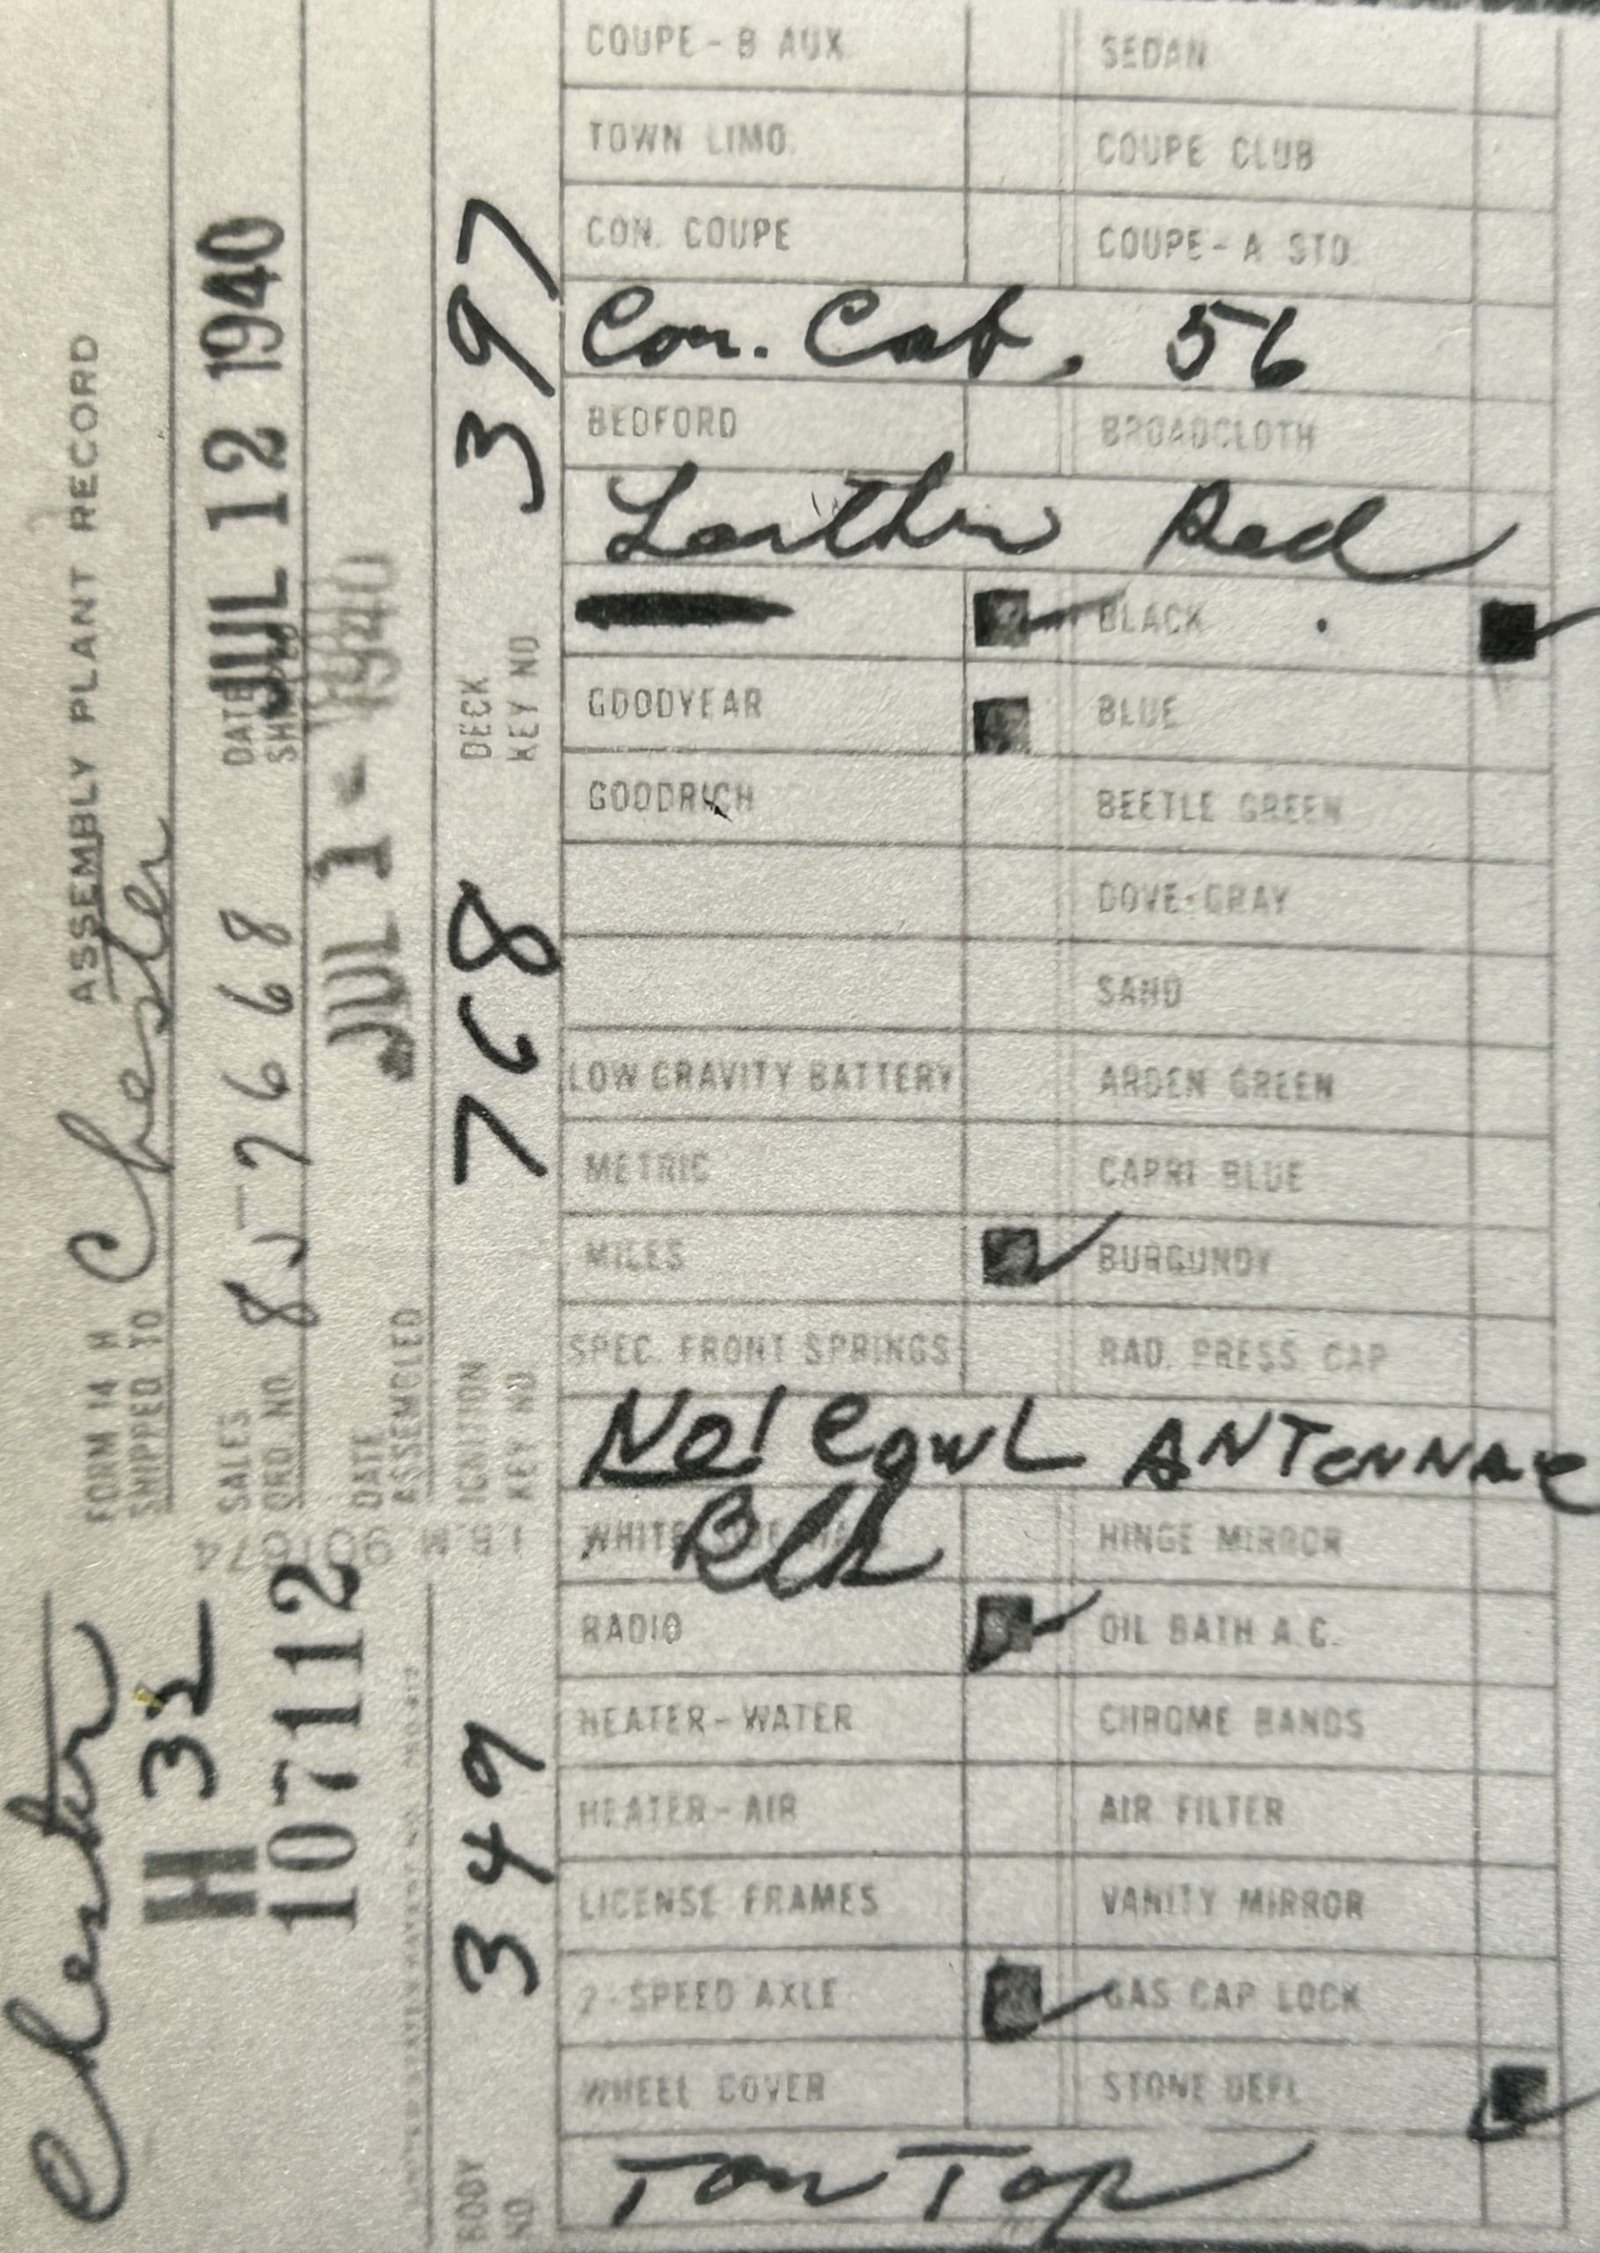 Chester
H 32
107112
FORM 14 H ASSEMBLY PLANT RECORD
SHIPPED TO Chester
SALES ORD. NO. 857668 DATE JUL 12 1940
DATE ASSEMBLED JUL 1 - 1940
I.B.M. 901674
BODY NO. 349
IGNITION KEY NO 768
DECK KEY NO 397
COUPE - B AUX. SEDAN
TOWN LIMO. COUPE CLUB
CON. COUPE COUPE - A STD.
Con. Cab. 56
BEDFORD BROADCLOTH
Leather Red
BLACK
GOODYEAR BLUE
GOODRICH BEETLE GREEN
DOVE-GRAY
SAND
LOW GRAVITY BATTERY ARDEN GREEN
METRIC CAPRI BLUE
MILES BURGUNDY
SPEC. FRONT SPRINGS RAD. PRESS. CAP
No! Cowl ANTENNAE
WHITE SIDE WALL Blk HINGE MIRROR
RADIO OIL BATH A.C.
HEATER - WATER CHROME BANDS
HEATER - AIR AIR FILTER
LICENSE FRAMES VANITY MIRROR
2 - SPEED AXLE GAS CAP LOCK
WHEEL COVER STONE DEFL.
Tan Top